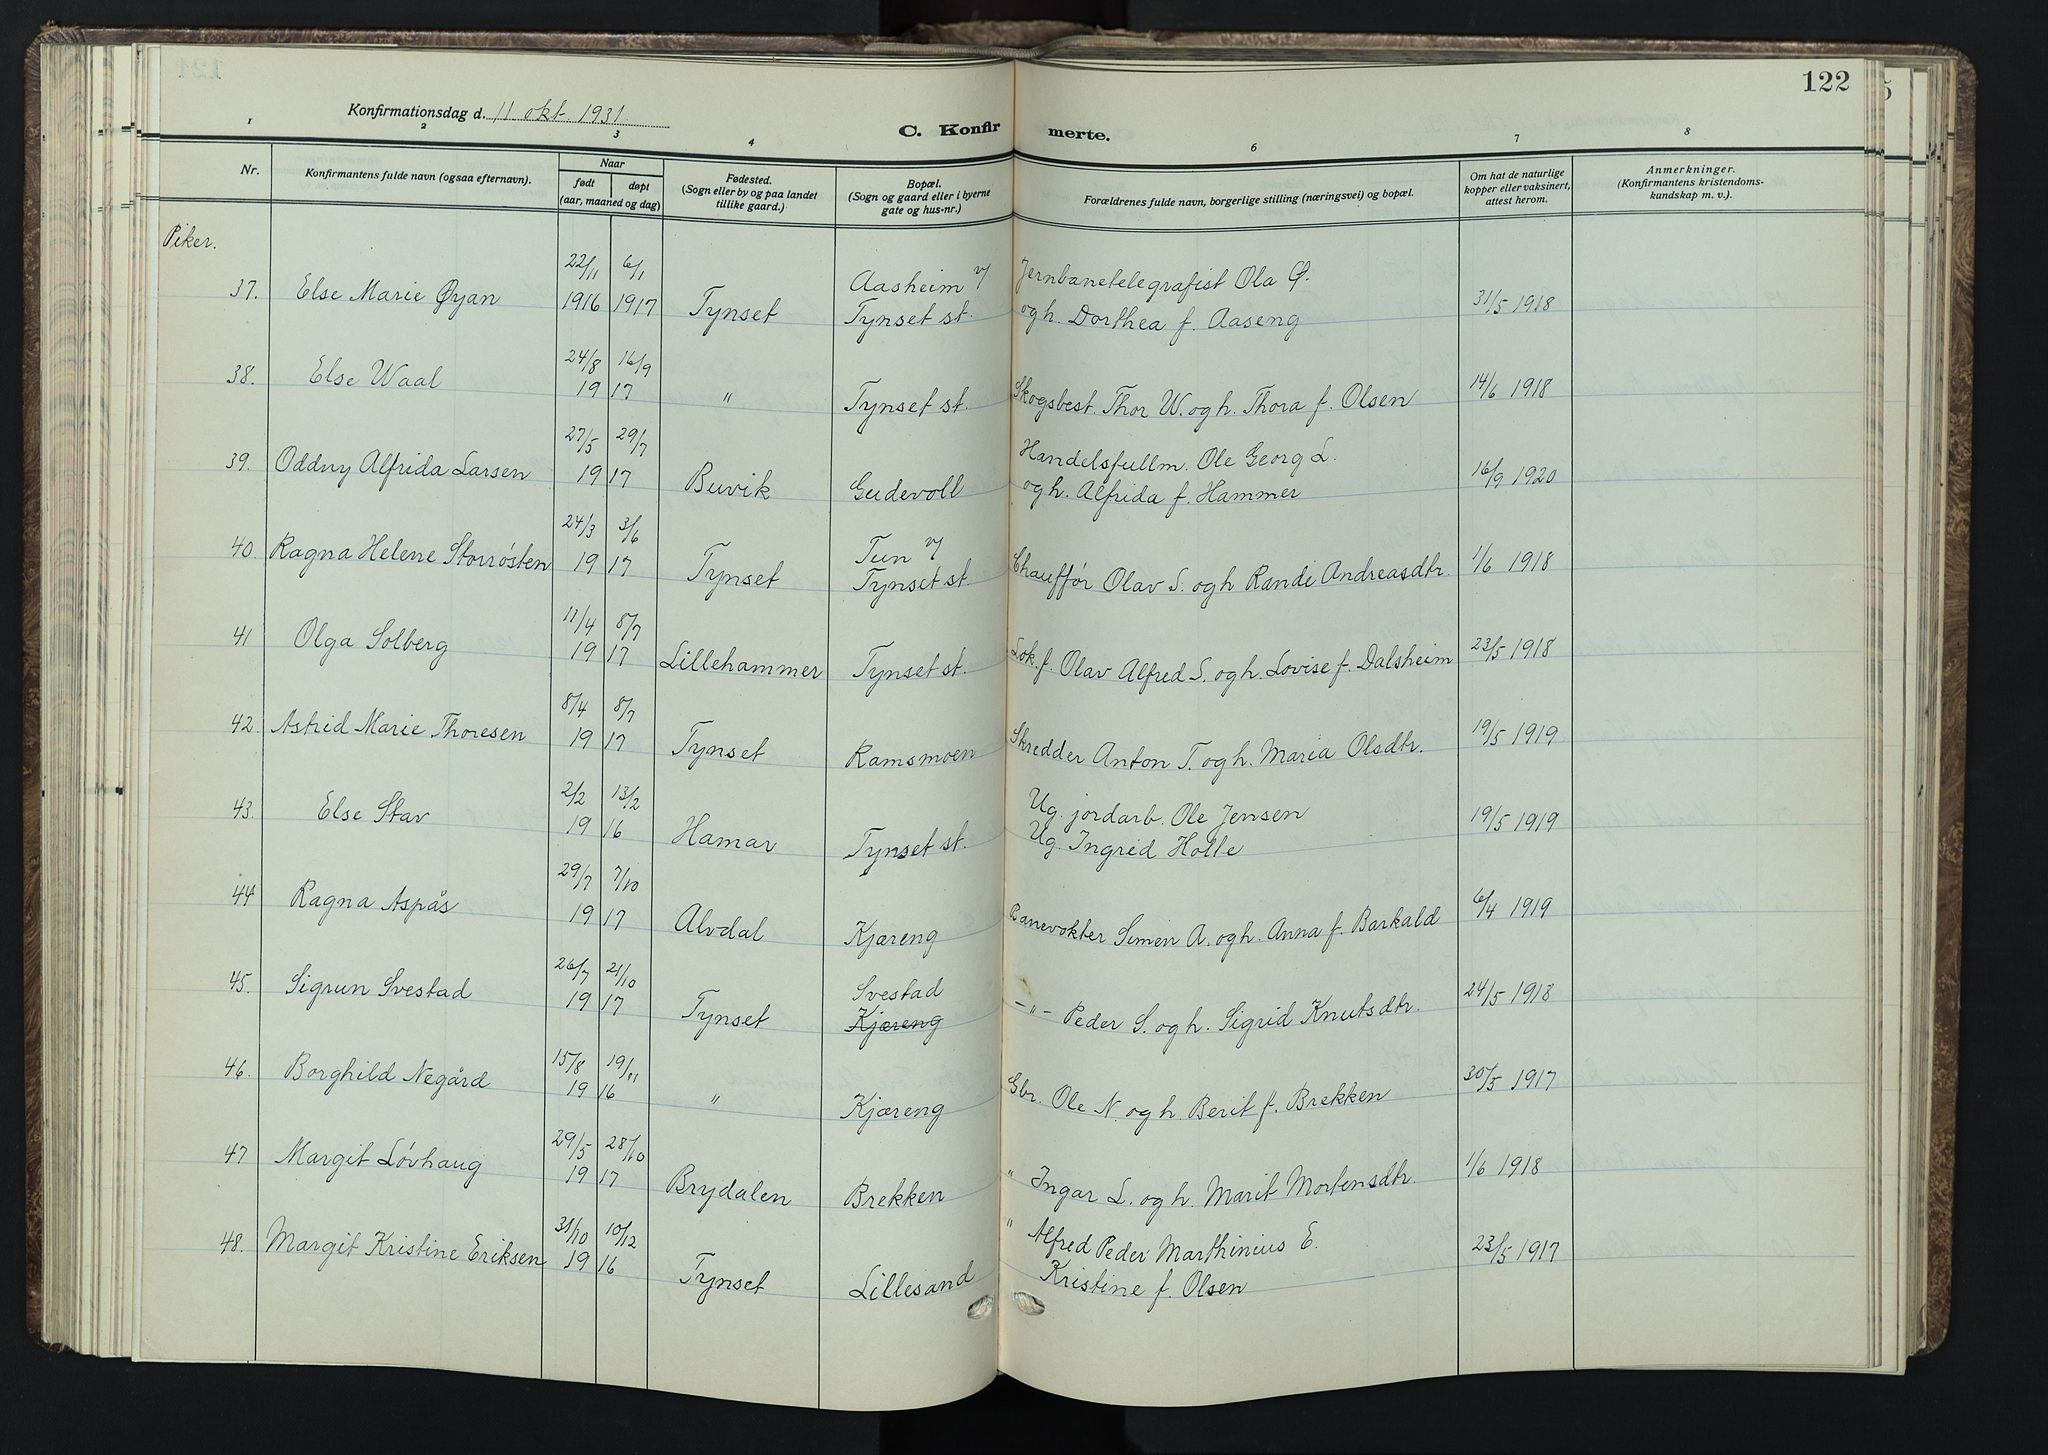 122
Konfirmationsdag d. 11 okt. 1931.
C. Konfirmerte.
1 2 3 4 6 7 8
Nr. Konfirmantens fulde navn (ogsaa efternavn). Naar født døpt (aar, maaned og dag) Fødested. (Sogn eller by og paa landet tillike gaard.) Bopæl. (Sogn og gaard eller i byerne gate og hus-nr.) Forældrenes fulde navn, borgerlige stilling (næringsvei) og bopæl. Om hat de naturlige kopper eller vaksinert, attest herom. Anmerkninger. (Konfirmantens kristendomskundskap m. v.).
Piker.
22/11 6/1 Aasheim v/ Jernbanetelegrafist Ola Ø.
37. Else Marie Øyan 1916 1917 Tynset Tynset st. og h. Dorthea f. Aaseng 31/5 1918
24/8 16/9
38. Else Waal 19 17 " Tynset st. Skogsbest. Thor W. og h. Thora f. Olsen 14/6 1918
27/5 29/7 Handelsfullm. Ole Georg L.
39. Oddny Alfrida Larsen 19 17 Buvik Gudevoll og h. Alfrida f. Hammer 16/9 1920
24/3 3/6 Tun v/
40. Ragna Helene Storrøsten 19 17 Tynset Tynset st. Chauffør Olav S. og h Randi Andreasdtr. 1/6 1918
17/4 8/7
41 Olga Solberg 19 17 Lillehammer Tynset st. Lok.f. Olav Alfred S. og h. Lovise f. Dalsheim 23/5 1918
8/4 8/7
42. Astrid Marie Thoresen 19 17 Tynset Ramsmoen Skredder Anton T. og h. Maria Olsdtr. 19/5 1919
2/2 13/2 Ug. jordarb. Ole Jensen
43. Else Stav 19 16 Hamar Tynset st. Ug. Ingrid Holle 19/5 1919
29/7 7/10
44 Ragna Aspås 19 17 Alvdal Kjæreng Banevokter Simen A. og h. Anna f. Barkald 6/4 1919
26/7 21/10 Svestad
45. Sigrun Svestad 19 17 Tynset Kjæreng -"- Peder S. og h. Sigrid Knutsdtr. 24/5 1918
15/8 19/11
46. Borghild Negård 19 16 " Kjæreng Gbr. Ole N. og h. Berit f. Brekken 30/5 1917
29/5 28/10
47 Margit Løvhaug 19 17 Brydalen Brekken " Ingar L. og h. Marit Mortensdtr. 1/6 1918
31/10 10/12 " Alfred Peder Marthinius E.
48. Margit Kristine Eriksen 19 16 Tynset Lillesand Kristine f. Olsen 23/5 1917